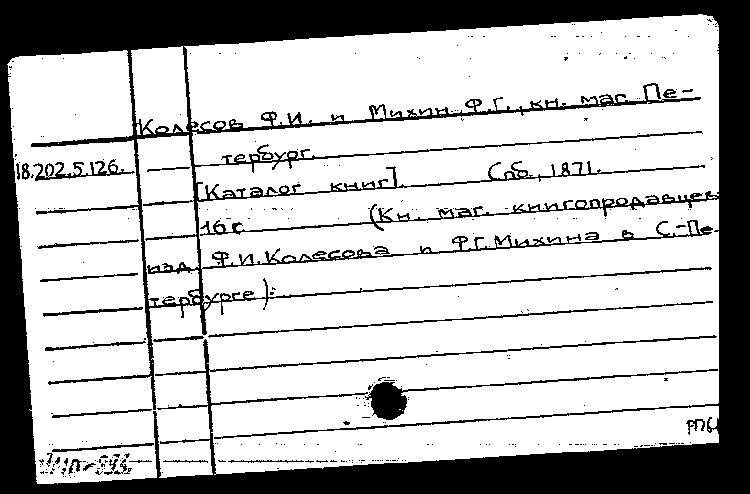 Колесов Ф.И. и Михин Ф.Г., кн. маг. Пе-
18.202.5.126. тербург.
[Каталог книг]. Спб., 1871.
16 с. (Кн. маг. книгопродавцев
изд. Ф.И.Колесова и Ф.Г.Михина в С.-Пе
тербурге).